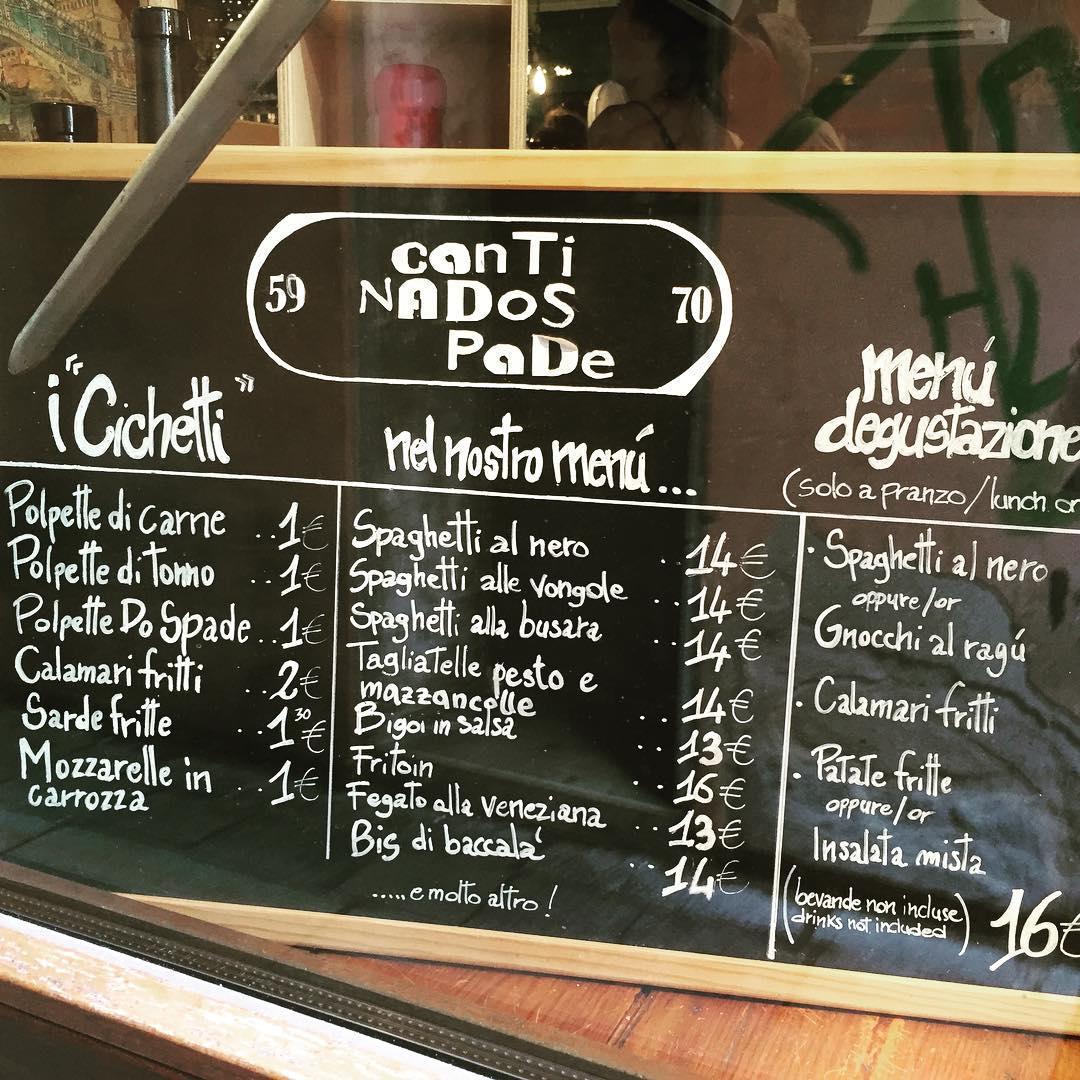 59
canTi
NADoS
PaDe
70
i "Cichetti"
Polpette di carne ..1€
Polpette di Tonno ..1€
Polpette Do Spade ..1€
Calamari fritti ..2€
Sarde fritte ..1³⁰€
Mozzarelle in
carrozza ..1€
nel nostro menú...
Spaghetti al nero ..14€
Spaghetti alle vongole ..14€
Spaghetti alla busara ..14€
Tagliatelle pesto e
mazzancolle ..14€
Bigoi in salsa ..13€
Fritoin ..16€
Fegato alla veneziana ..13€
Bis di baccala' ..14€
.....e molto altro!
menú
degustazione
(solo a pranzo/lunch
· Spaghetti al nero
oppure/or
Gnocchi al ragú
· Calamari fritti
· Patate fritte
oppure/or
Insalata mista
(bevande non incluse
drinks not included) 16€